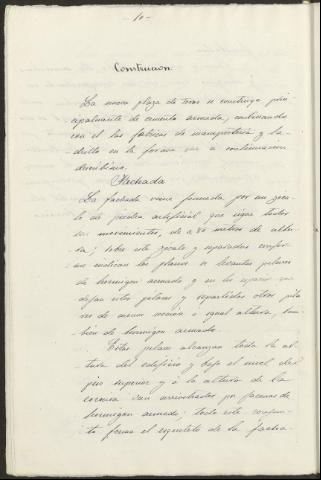 - 10 -
Construcion
La nueva plaza de toros se construye prin-
cipalmente de cemento armado, combinando
con el las fabricas de mamposteria y la-
drillo en la forma que a continuacion
describimos.
Fachada
La fachada viene formada por un zoca-
lo de piedra artificial que sigue todos
sus movimientos, de 0'80 metros de altu-
ra; sobre este zocalo y separados confor-
me indican los planos se levantan pilares
de hormigon armado y en los espacios que
dejan estos pilares y repartidos otros pila-
res de menor seccion é igual altura, tam-
bien de hormigon armado.
Estos pilares alcanzan toda la al-
tura del edificio y bajo el nivel del
piso superior y á la altura de la
cornisa van arriostrados por jacenas de
hormigon armado: todo este conjun-
to forma el esqueleto de la facha-